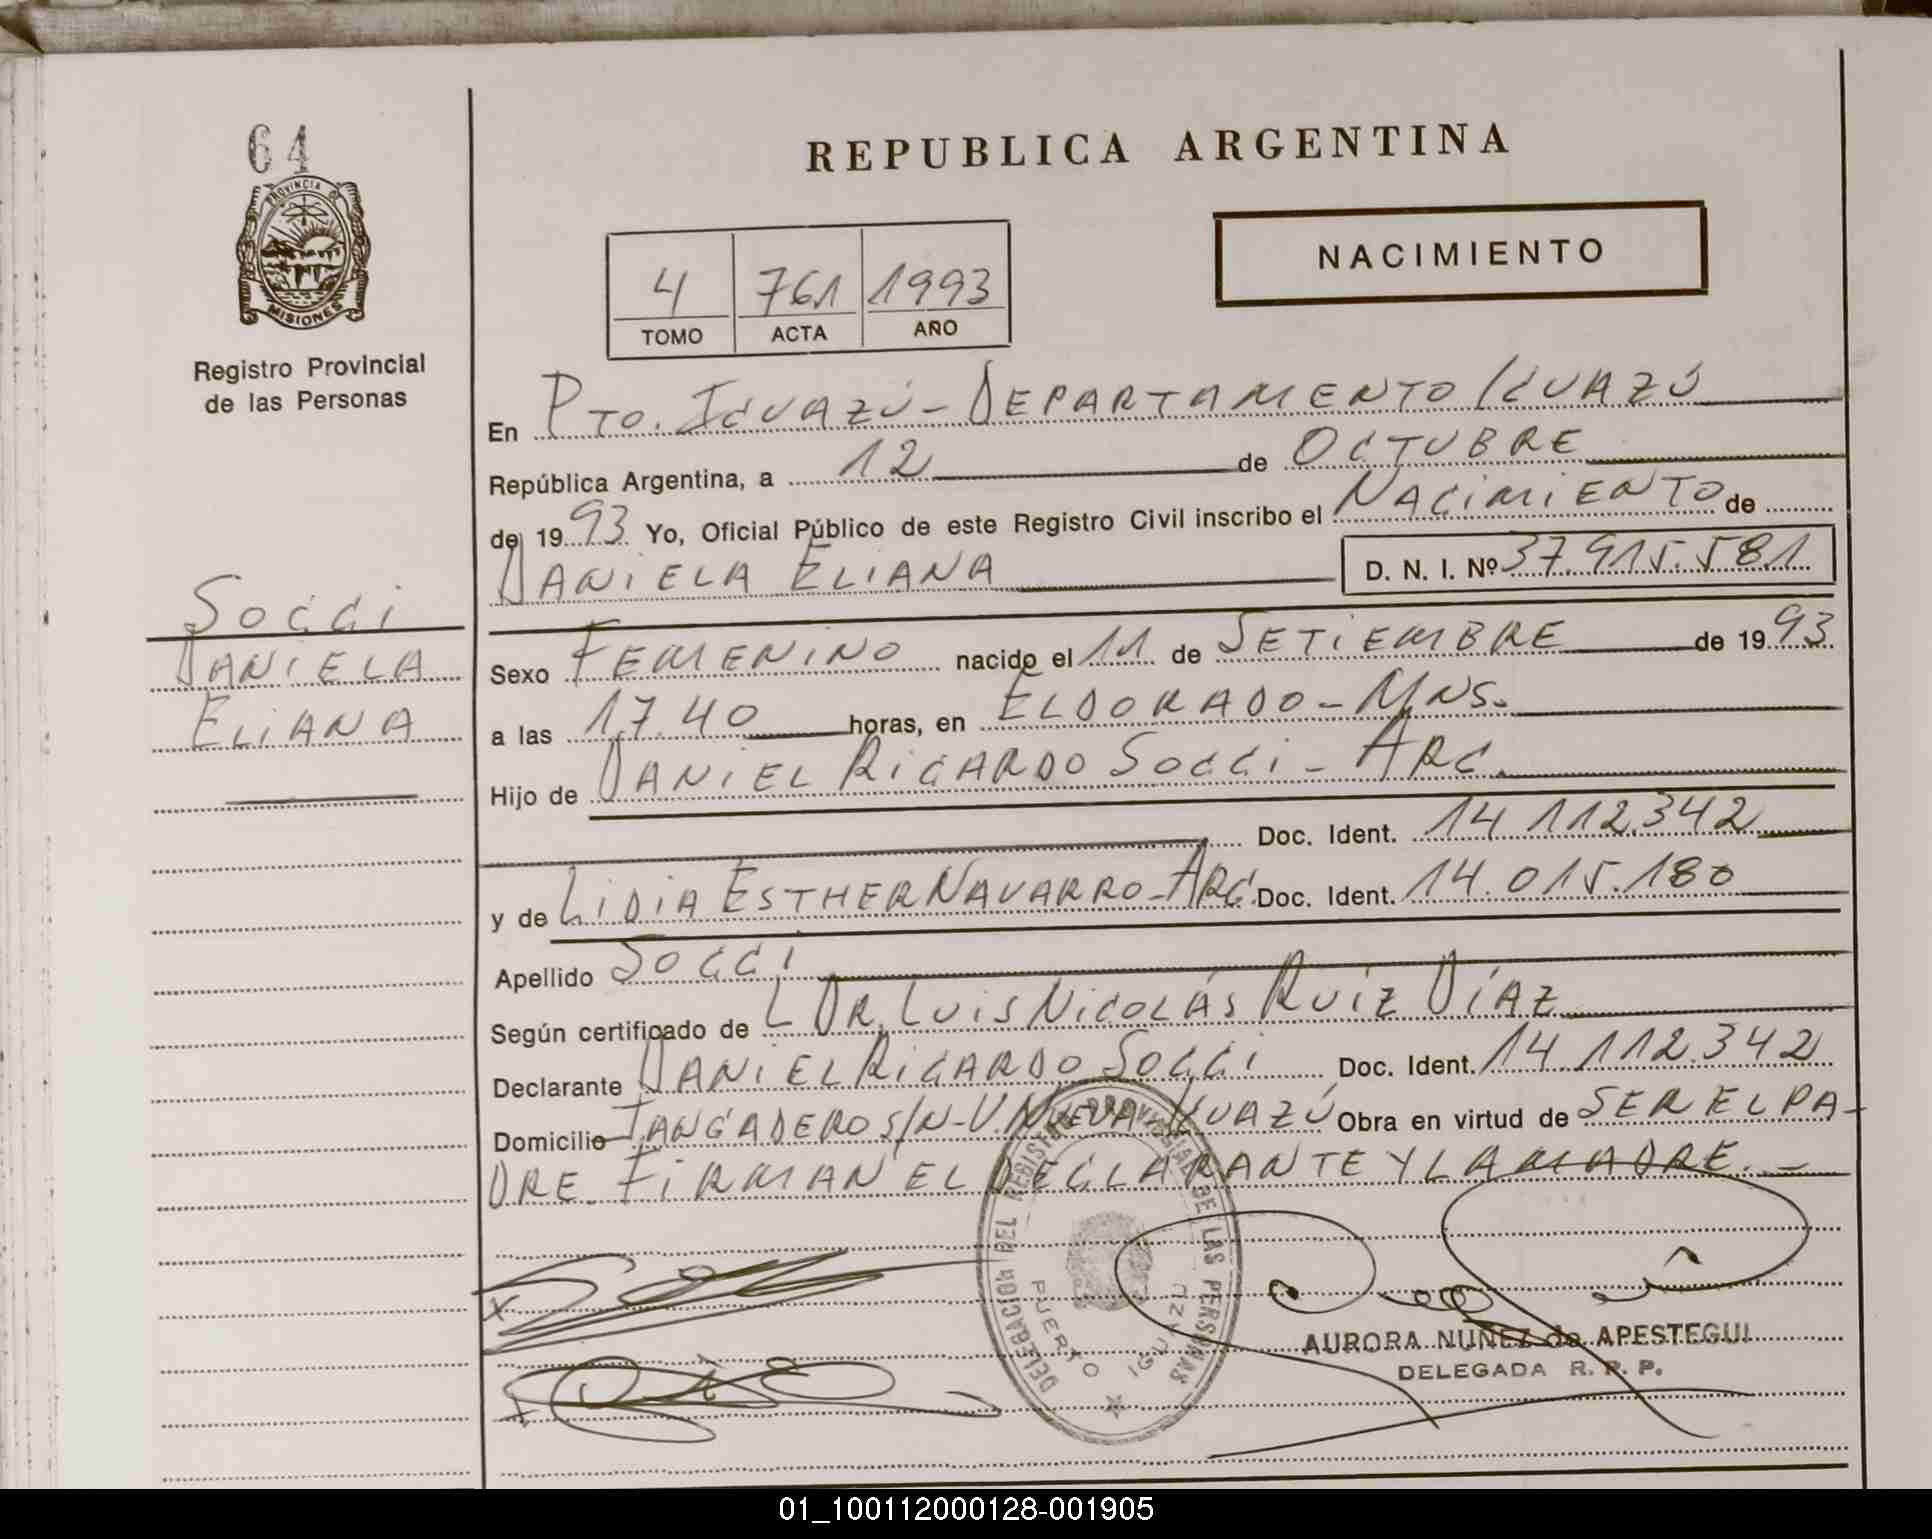 64
PROVINCIA DE
MISIONES
Registro Provincial
de las Personas
SOCCI
DANIELA
ELIANA
REPUBLICA ARGENTINA
NACIMIENTO
4 761 1993
TOMO ACTA AÑO
En PTO. IGUAZÚ - DEPARTAMENTO IGUAZÚ
República Argentina, a 12 de OCTUBRE
de 1993 Yo, Oficial Público de este Registro Civil inscribo el NACIMIENTO de
DANIELA ELIANA D. N. I. Nº 37.915.581
Sexo FEMENINO nacido el 11 de SETIEMBRE de 1993
a las 17.40 horas, en ELDORADO - MNS.
Hijo de DANIEL RICARDO SOCCI - ARG.
Doc. Ident. 14.112.342
y de LIDIA ESTHER NAVARRO - ARG. Doc. Ident. 14.015.180
Apellido SOCCI
Según certificado de L DR. LUIS NICOLÁS RUIZ DÍAZ
Declarante DANIEL RICARDO SOCCI Doc. Ident. 14.112.342
Domicilio TANGADERO S/N - V. NUEVA IGUAZÚ Obra en virtud de SER EL PA-
DRE. FIRMAN EL DECLARANTE Y LA MADRE. -
DELEGACION DEL REGISTRO PROVINCIAL DE LAS PERSONAS
PUERTO IGUAZU
AURORA NUÑEZ de APESTEGUI
DELEGADA R. P. P.
01_100112000128-001905